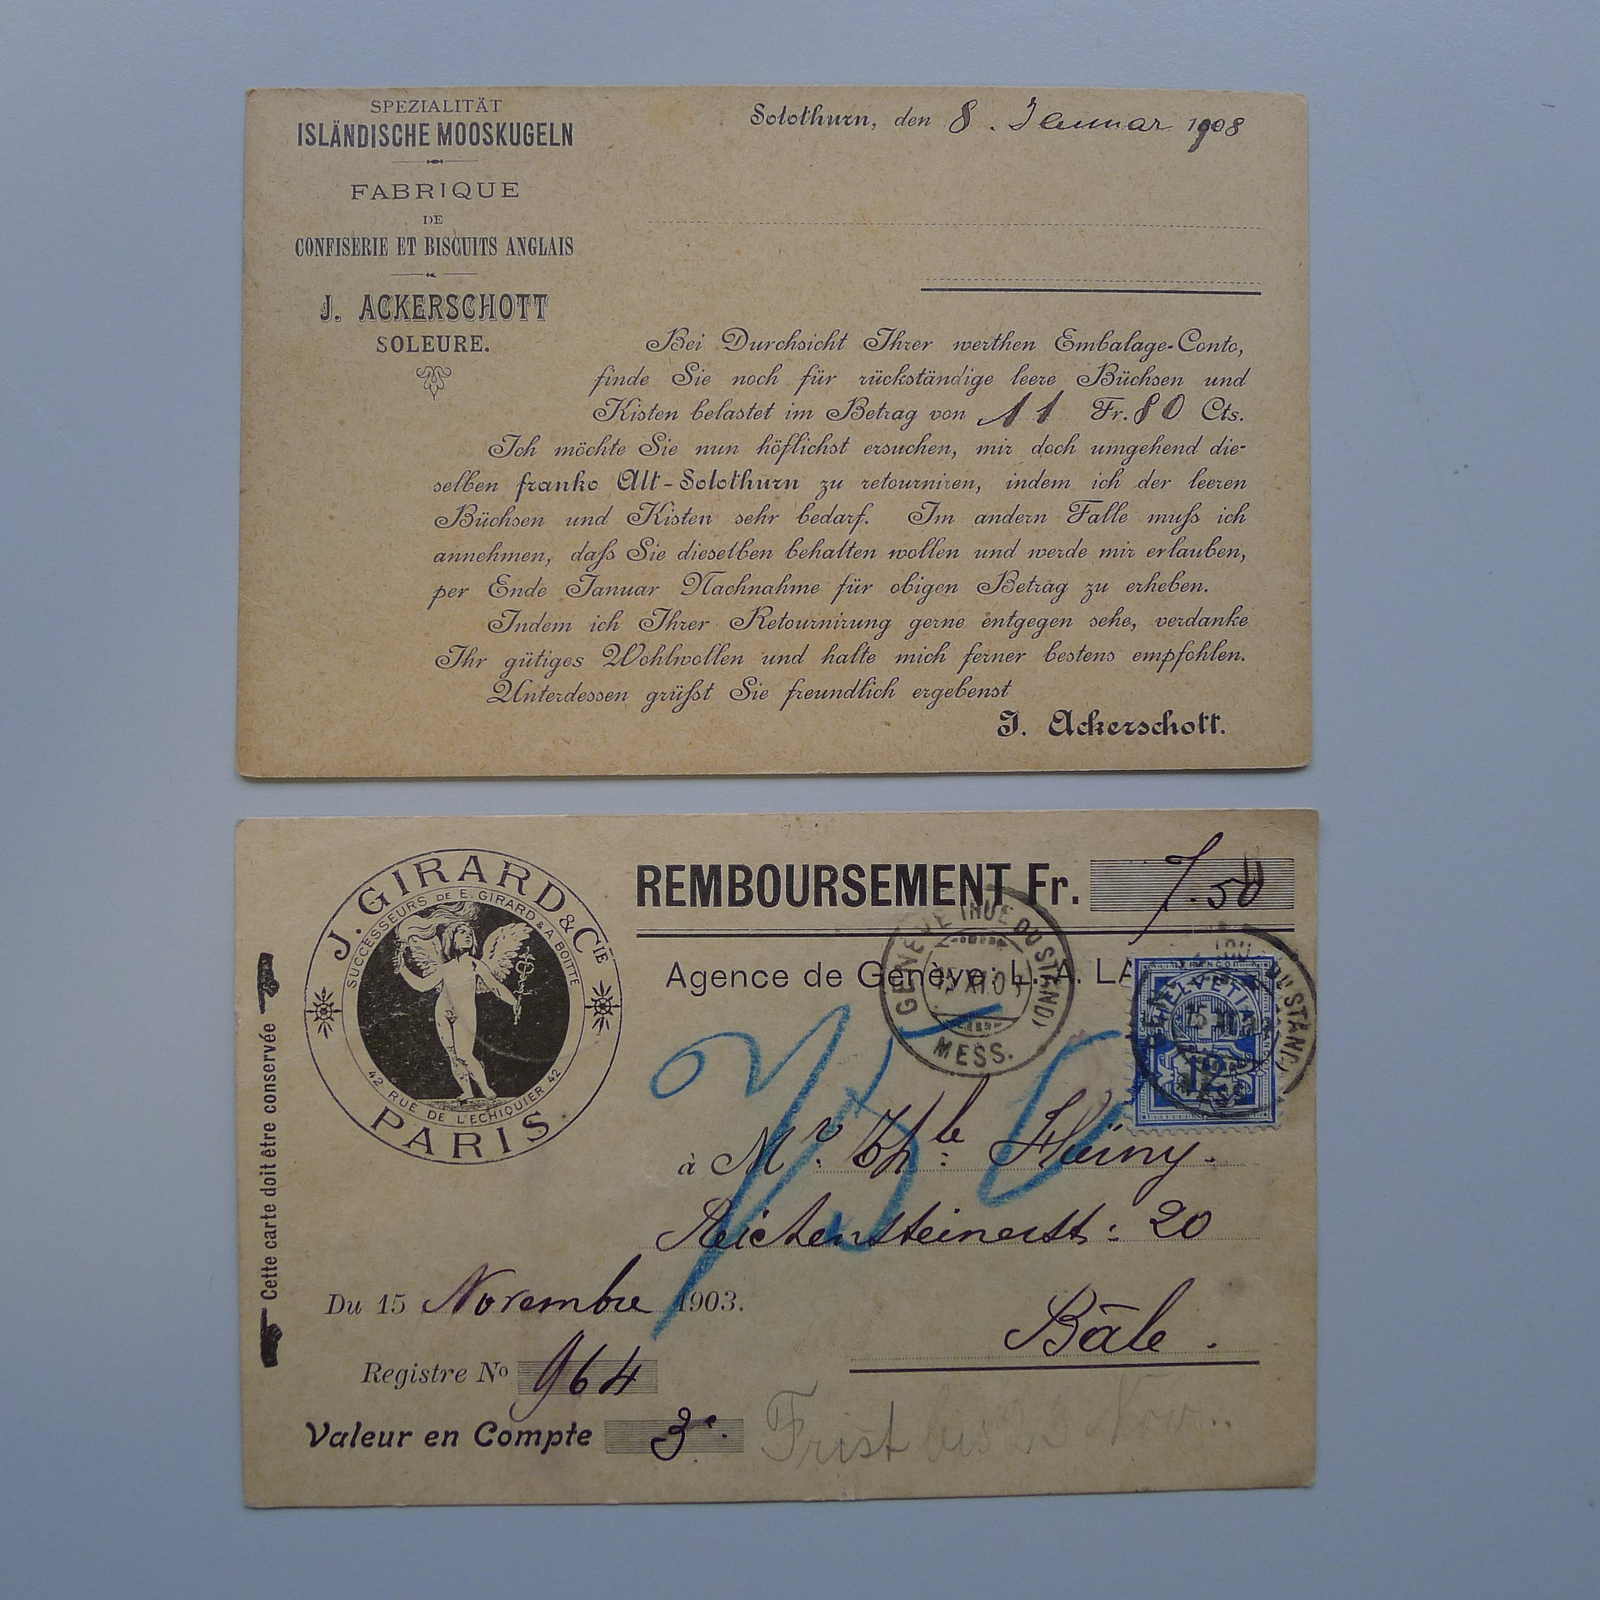 SPEZIALITÄT
ISLÄNDISCHE MOOSKUGELN
FABRIQUE
DE
CONFISERIE ET BISCUITS ANGLAIS
J. ACKERSCHOTT
SOLEURE.
Solothurn, den 8. Januar 1908
Bei Durchsicht Ihrer werthen Embalage-Conto,
finde Sie noch für rückständige leere Büchsen und
Kisten belastet im Betrag von 11 Fr. 80 Cts.
Ich möchte Sie nun höflichst ersuchen, mir doch umgehend die-
selben franko Alt-Solothurn zu retourniren, indem ich der leeren
Büchsen und Kisten sehr bedarf. Im andern Falle muß ich
annehmen, daß Sie dieselben behalten wollen und werde mir erlauben,
per Ende Januar Nachnahme für obigen Betrag zu erheben.
Indem ich Ihrer Retournirung gerne entgegen sehe, verdanke
Ihr gütiges Wohlwollen und halte mich ferner bestens empfohlen.
Unterdessen grüßt Sie freundlich ergebenst
J. Ackerschott.
J. GIRARD & CIE
SUCCESSEURS DE E. GIRARD & A. BOITTE
42 RUE DE L'ECHIQUIER 42
PARIS
Cette carte doit être conservée
REMBOURSEMENT Fr. 7.50
Agence de Genève: L. A.
GENÈVE (RUE DU STAND)
MESS.
HELVETIA
12
à Mr.
20
Bâle.
Du 15 Novembre 1903.
Registre No 964
Valeur en Compte 3e.
Frist bis 22 Nov..